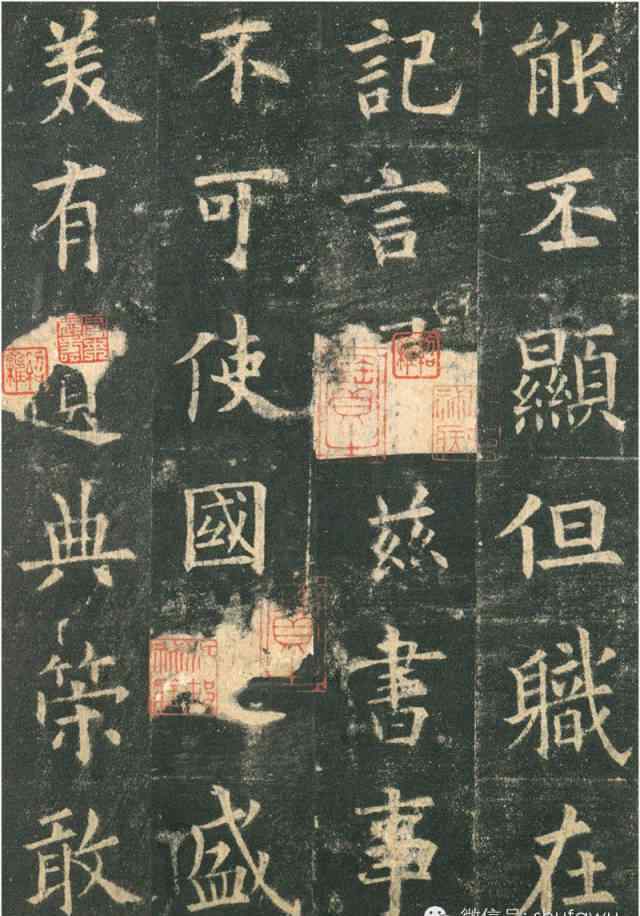 能丕顯但職在
記言茲書事
不可使國盛
美有遺典策敢
微信号: shufawu